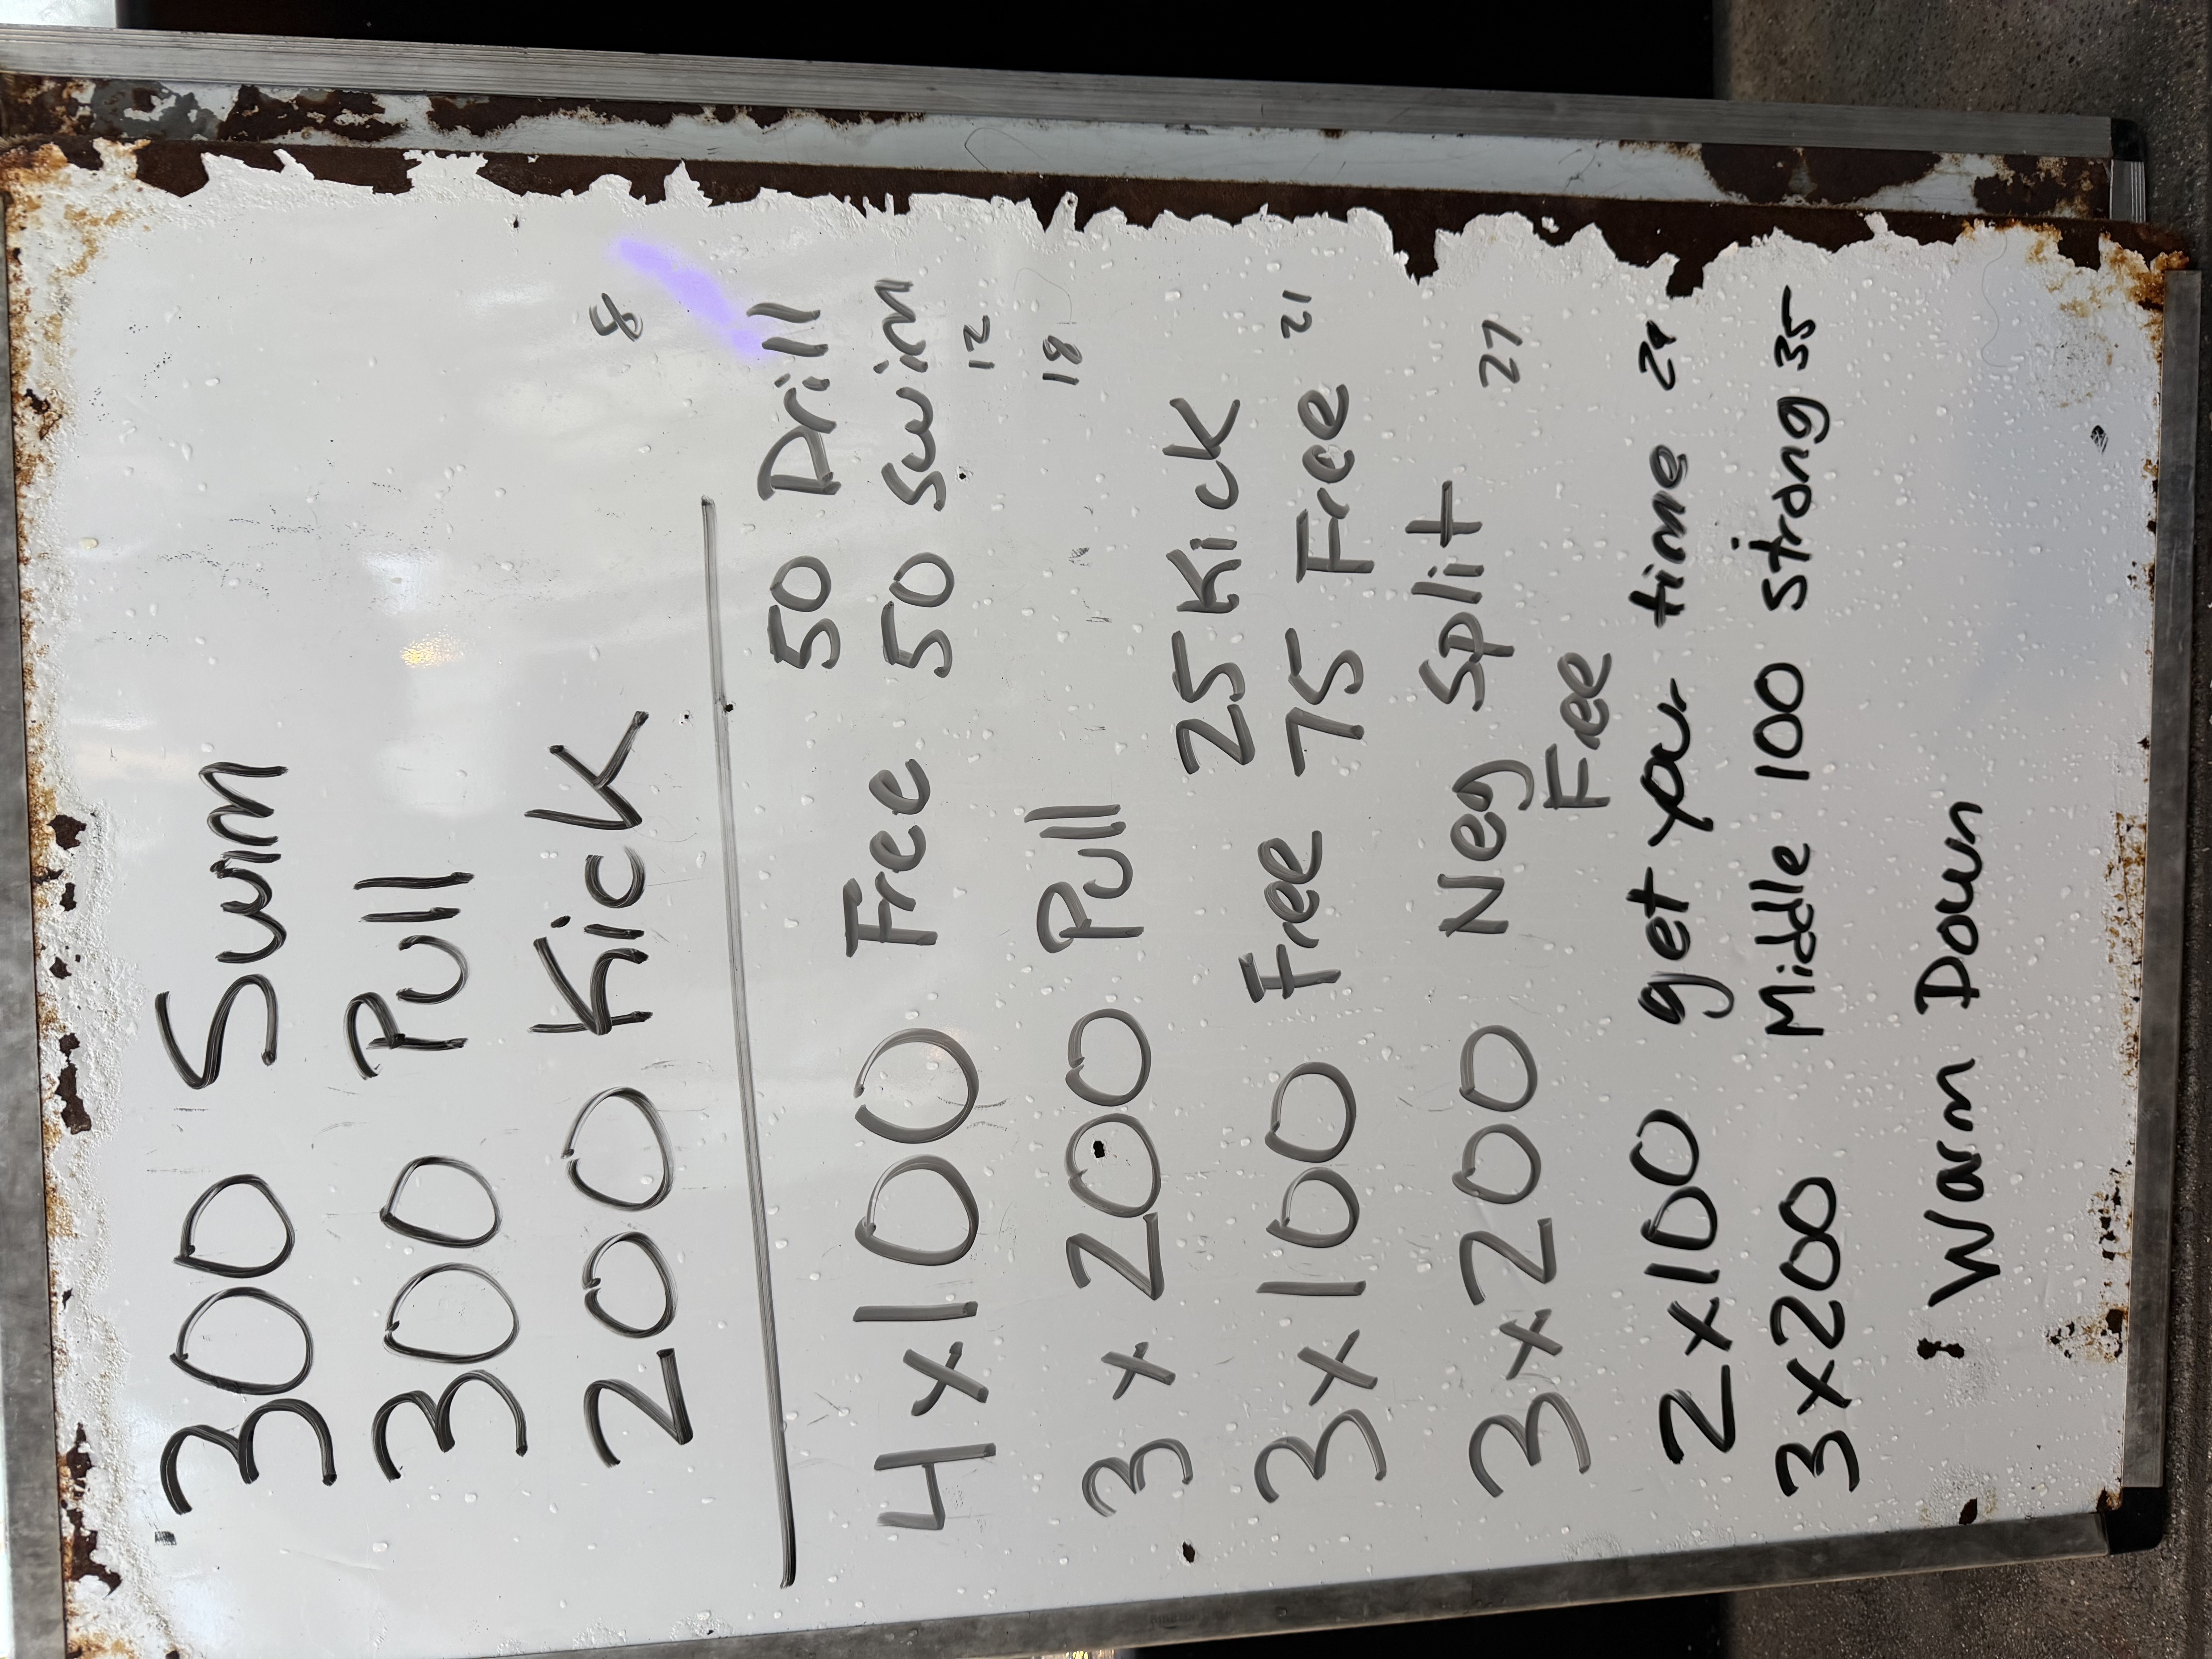 300 Swim
300 Pull
200 Kick 8
50 Drill
4x100 Free 50 Swim
12
3x200 Pull 18
25 Kick
3x100 Free 75 Free 21
3x200 Neg Split 27
Free
2x100 get your time 29
3x200 Middle 100 strong 35
Warm Down